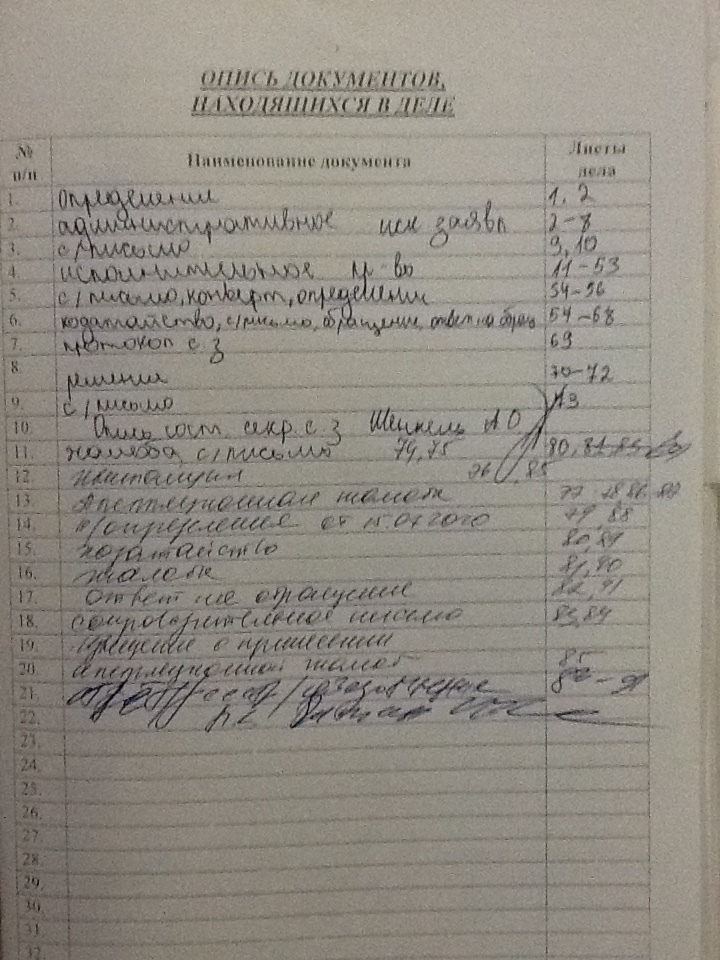 ОПИСЬ ДОКУМЕНТОВ,
НАХОДЯЩИХСЯ В ДЕЛЕ
№ п/п Наименование документа Листы дела
1. определении 1, 2
2. административное иск заявл 2-8
3. с/письмо 9, 10
4. исполнительное пр-во 11-53
5. с/письмо, конверт, определении 54-56
6. ходатайство, с/письмо, обращение, ответ на обращ 57-68
7. протокол с.з 69
8. решения 70-72
9. с/письмо 73
10. Опись сост. секр. с.з Шенкель А О
11. жалоба, с/письмо 74, 75
12. квитанция 76
13. Апелляционная жалоба 77
14. определения от 79, 88
15. ходатайство 80, 89
16. жалоба 81, 90
17. ответ на обращение 82, 91
18. сопроводительное письмо 83, 84
19. о принесении
20. апелляционной жалоб 85
21.
22.
23.
24.
25.
26.
27.
28.
29.
30.
31
32.